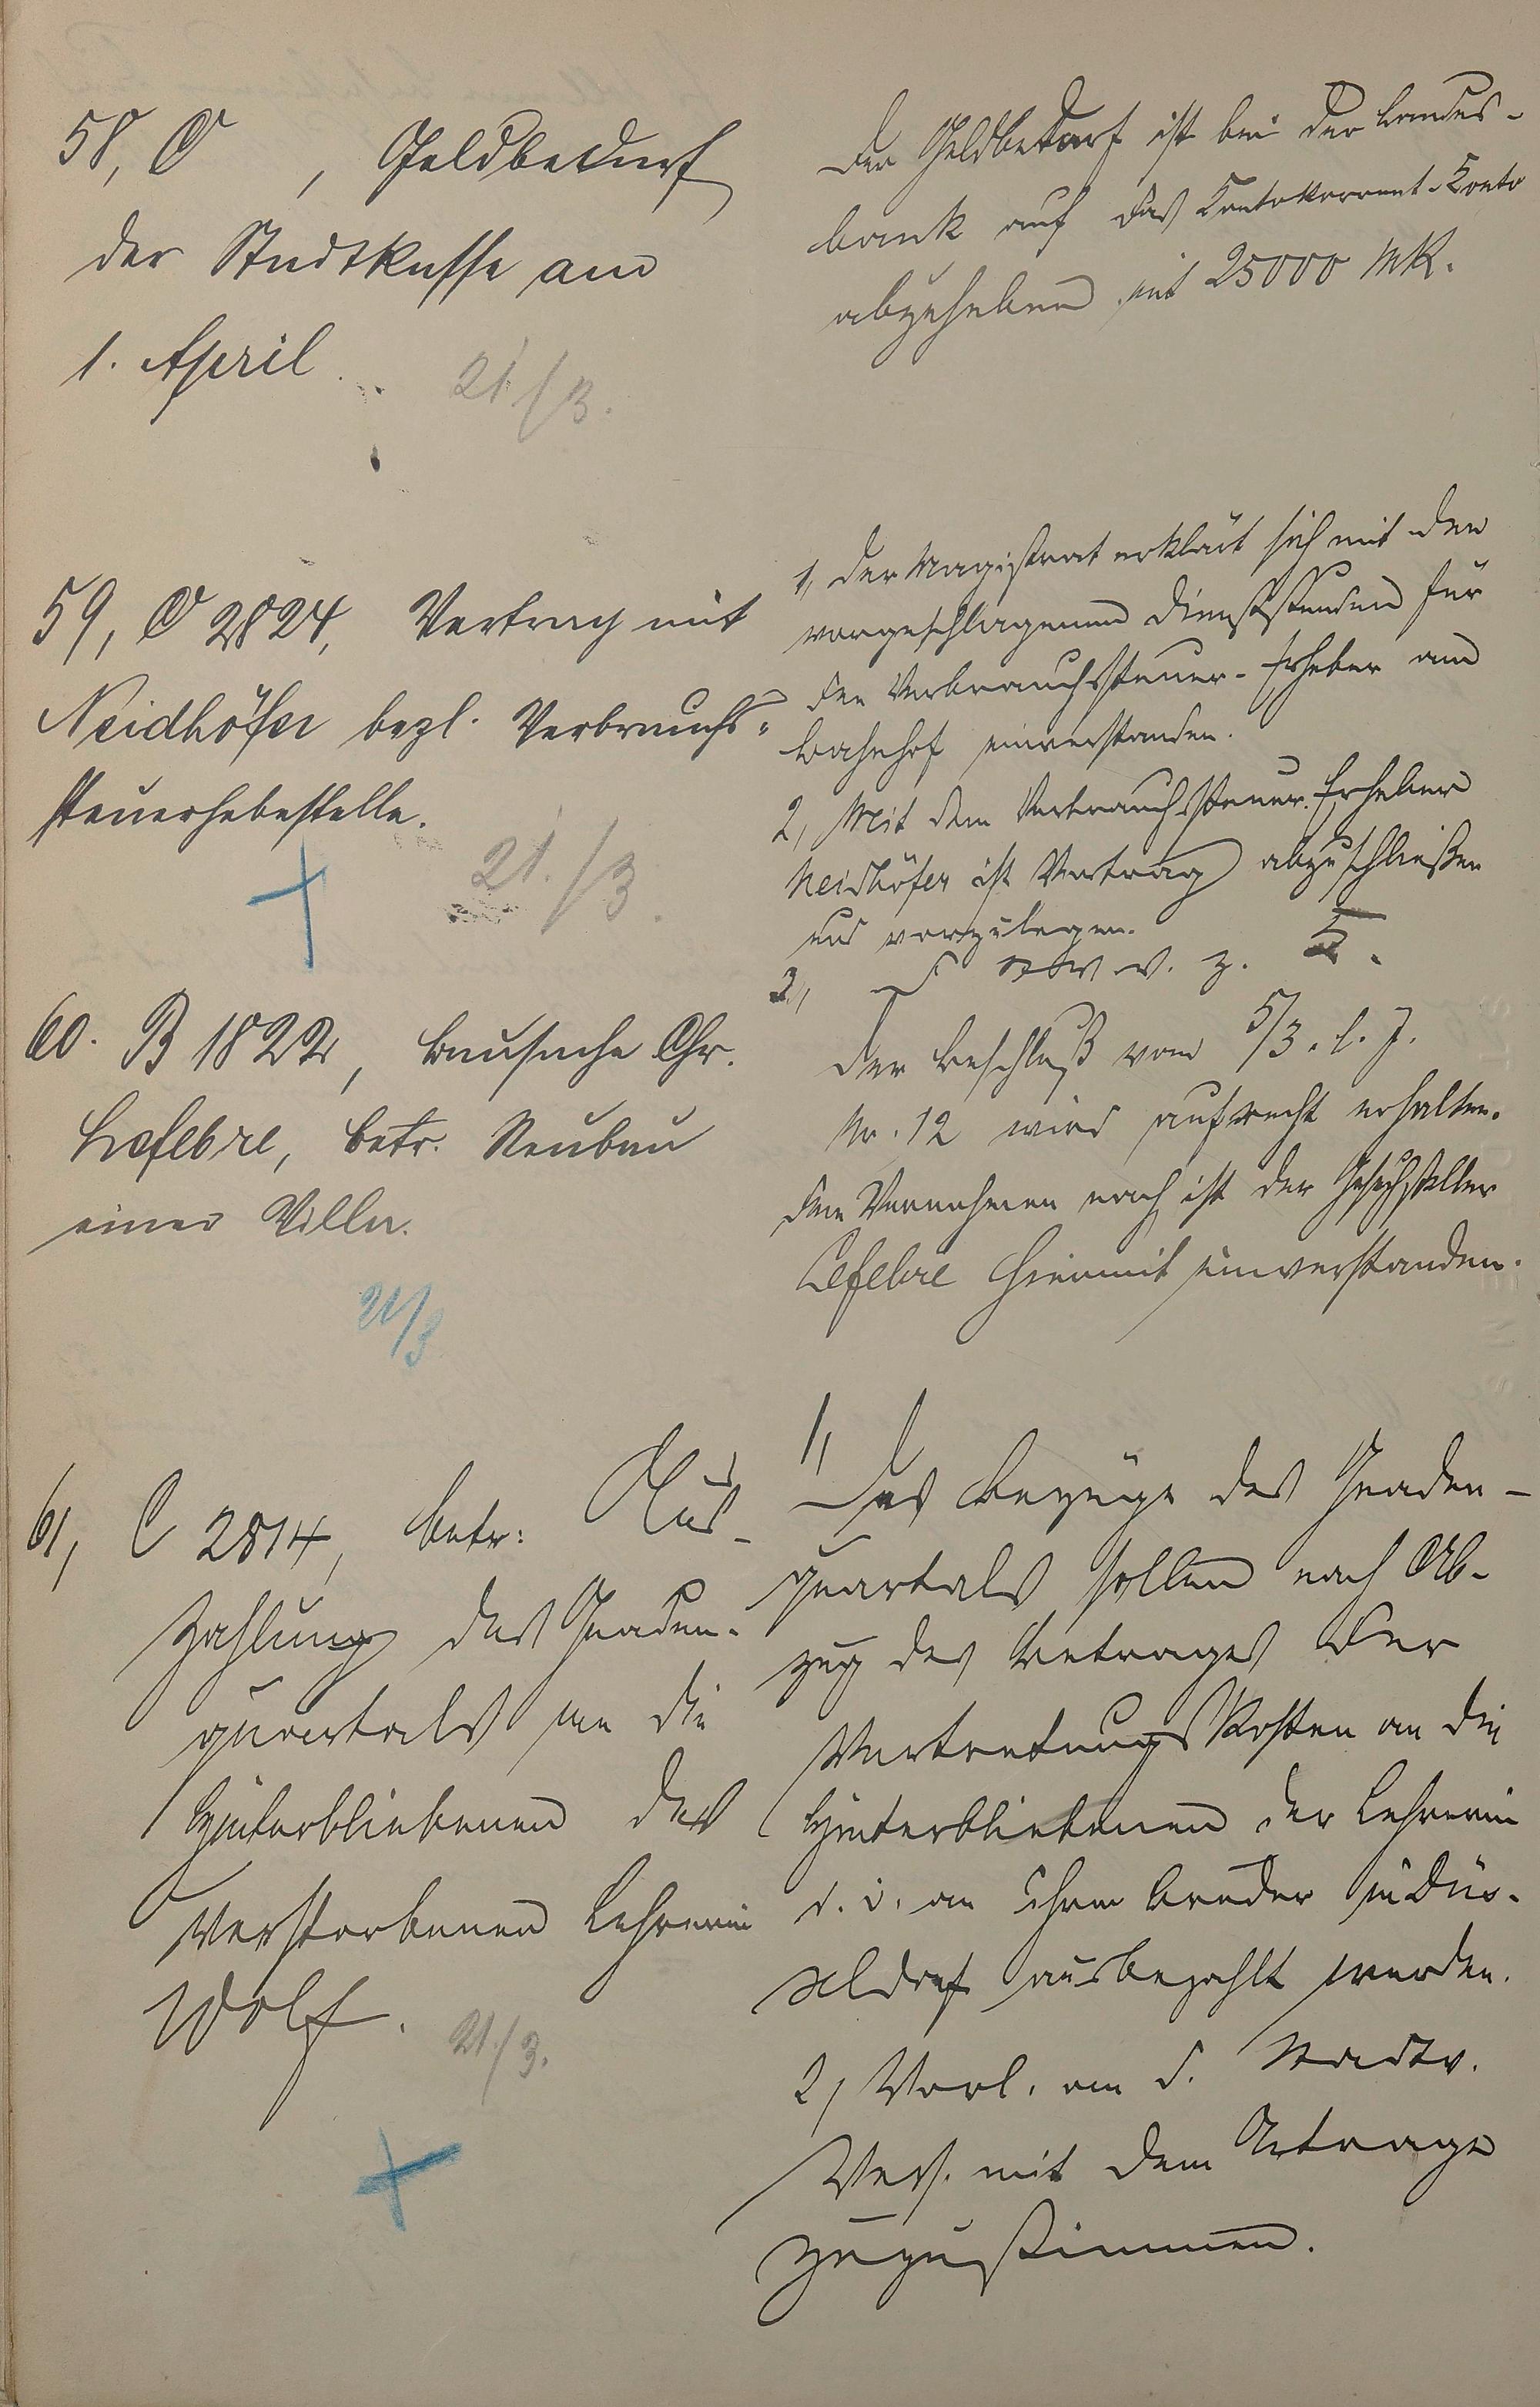 58, C , Geldbedarf
der Stadtkasse am
1. April.
21/3.
Der Geldbedarf ist bei der Landes-
bank auf das Contokorrent-Conto
abzuheben mit 25000 Mk.
59, C 2824, Vertrag mit
Neidhöfer bezl. Verbrauchs-
steuerhebestelle.
21./3.
1, Der Magistrat erklärt sich mit den
vorgeschlagenen Dienststunden für
den Verbrauchssteuer-Erheber am
Bahnhof einverstanden.
2, Mit dem Verbrauchssteuer-Erheber
Neidhöfer ist Vertrag abzuschließen
und vorzulegen.
3,
60. B 1822, Bausache Chr.
Lefebre, betr. Neubau
einer Villa.
21/3
Der Beschluß vom 5/3. l. J.
Nr. 12 wird aufrecht erhalten.
Dem Vernehmen nach ist der Gesuchsteller
Lefebre hiermit einverstanden.
61, C 2814, betr: Aus-
zahlung des Gnaden-
quartals an die
Hinterbliebenen der
verstorbenen Lehrerin
Wolf.
21./3.
1, Das Bezüge des Gnaden-
quartals sollen nach Ab-
zug des Betrages der
Vertretungskosten an die
Hinterbliebenen der Lehrerin
d. i. an ihren Bruder in Düs-
seldorf ausbezahlt werden.
2, Vorl. an d. Stadtv.
Vers. mit dem Antrage
zuzustimmen.